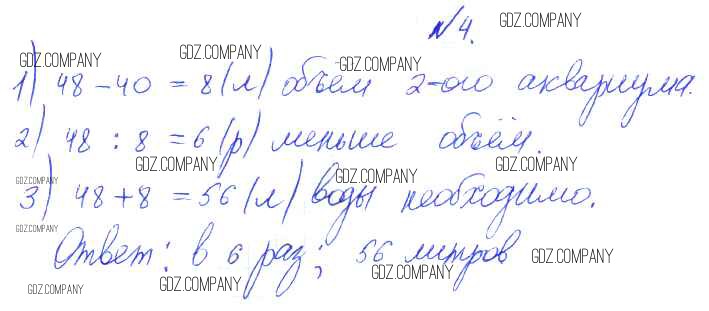 №4. GDZ.COMPANY
GDZ.COMPANY GDZ.COMPANY GDZ.COMPANY
1) 48 - 40 = 8 (л) объём 2-ого аквариума.
2) 48 : 8 = 6 (р) меньше объём.
GDZ.COMPANY GDZ.COMPANY
GDZ.COMPANY GDZ.COMPANY
3) 48 + 8 = 56 (л) воды необходимо.
GDZ.COMPANY
Ответ: в 6 раз; 56 литров
GDZ.COMPANY
GDZ.COMPANY GDZ.COMPANY GDZ.COMPANY